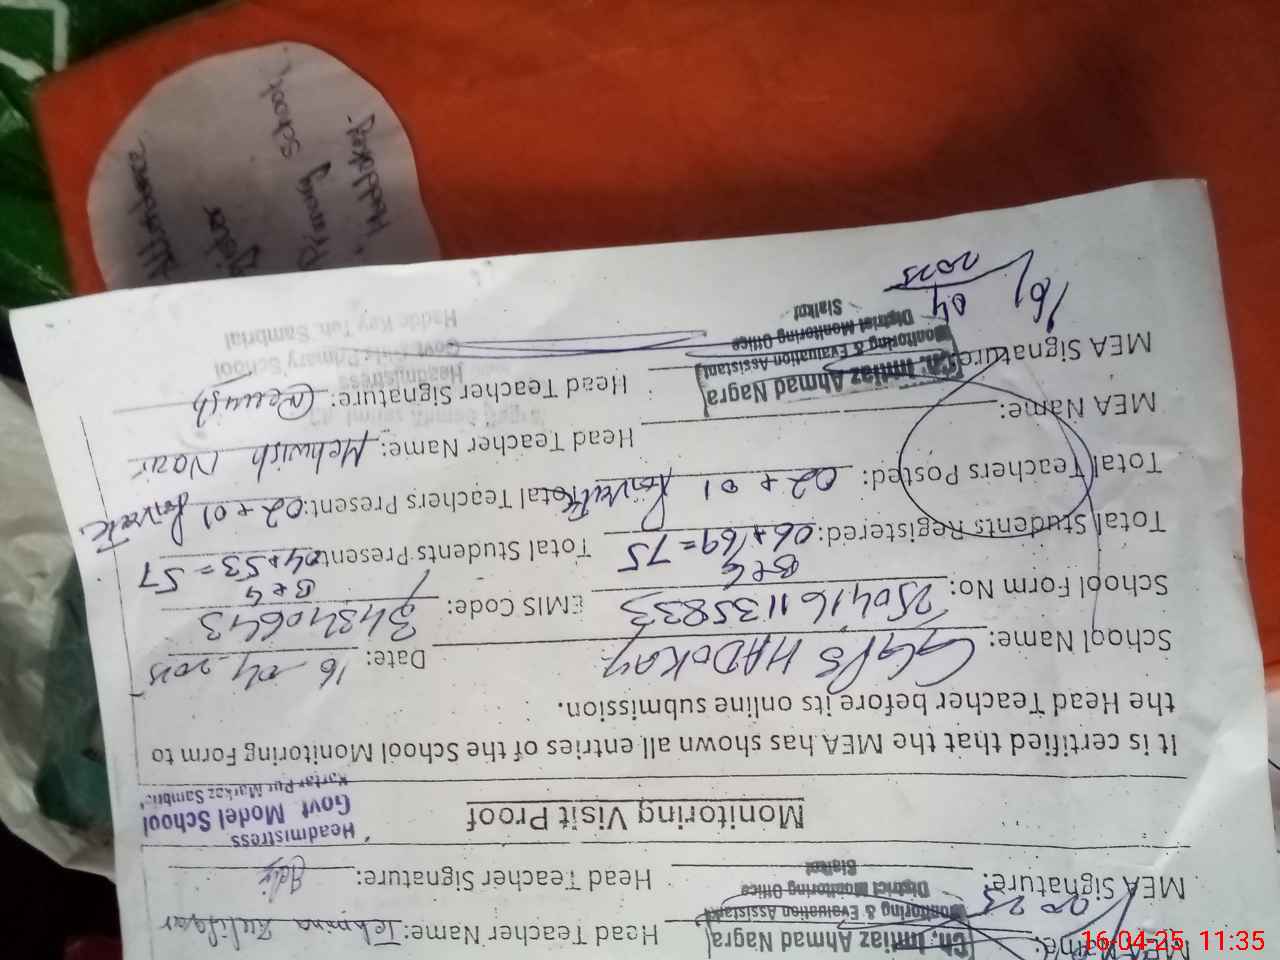 Monitoring Visit Proof
It is certified that the MEA has shown all entries of the School Monitoring Form to
the Head Teacher before its online submission.
School Name: GGPS HADOKAY Date: 16-04-2025
School Form No: EMIS Code: 34340643
B+G B+G
Total Students Registered: 06+69=75 Total Students Present: 04+53=57
Total Teachers Posted: 02+01 Private Total Teachers Present: 02+01 Private
MEA Name: Head Teacher Name: Mehwish Nazir
MEA Signature: Head Teacher Signature: Mewish
Ch. Imtiaz Ahmad Nagra
Monitoring & Evaluation Assistant
District Monitoring Office
Sialkot
16/04/2025
Headmistress
Govt. Girls Primary School
Haddo Kay Teh. Sambrial
Head Teacher Name: Tehmina Zulifqar
MEA Signature: Head Teacher Signature:
Ch. Imtiaz Ahmad Nagra
Monitoring & Evaluation Assistant
District Monitoring Office
Sialkot
Headmistress
Govt Model School
Kartar Pur Markaz Sambrial
Attendance
Primary School
16-04-25 11:35